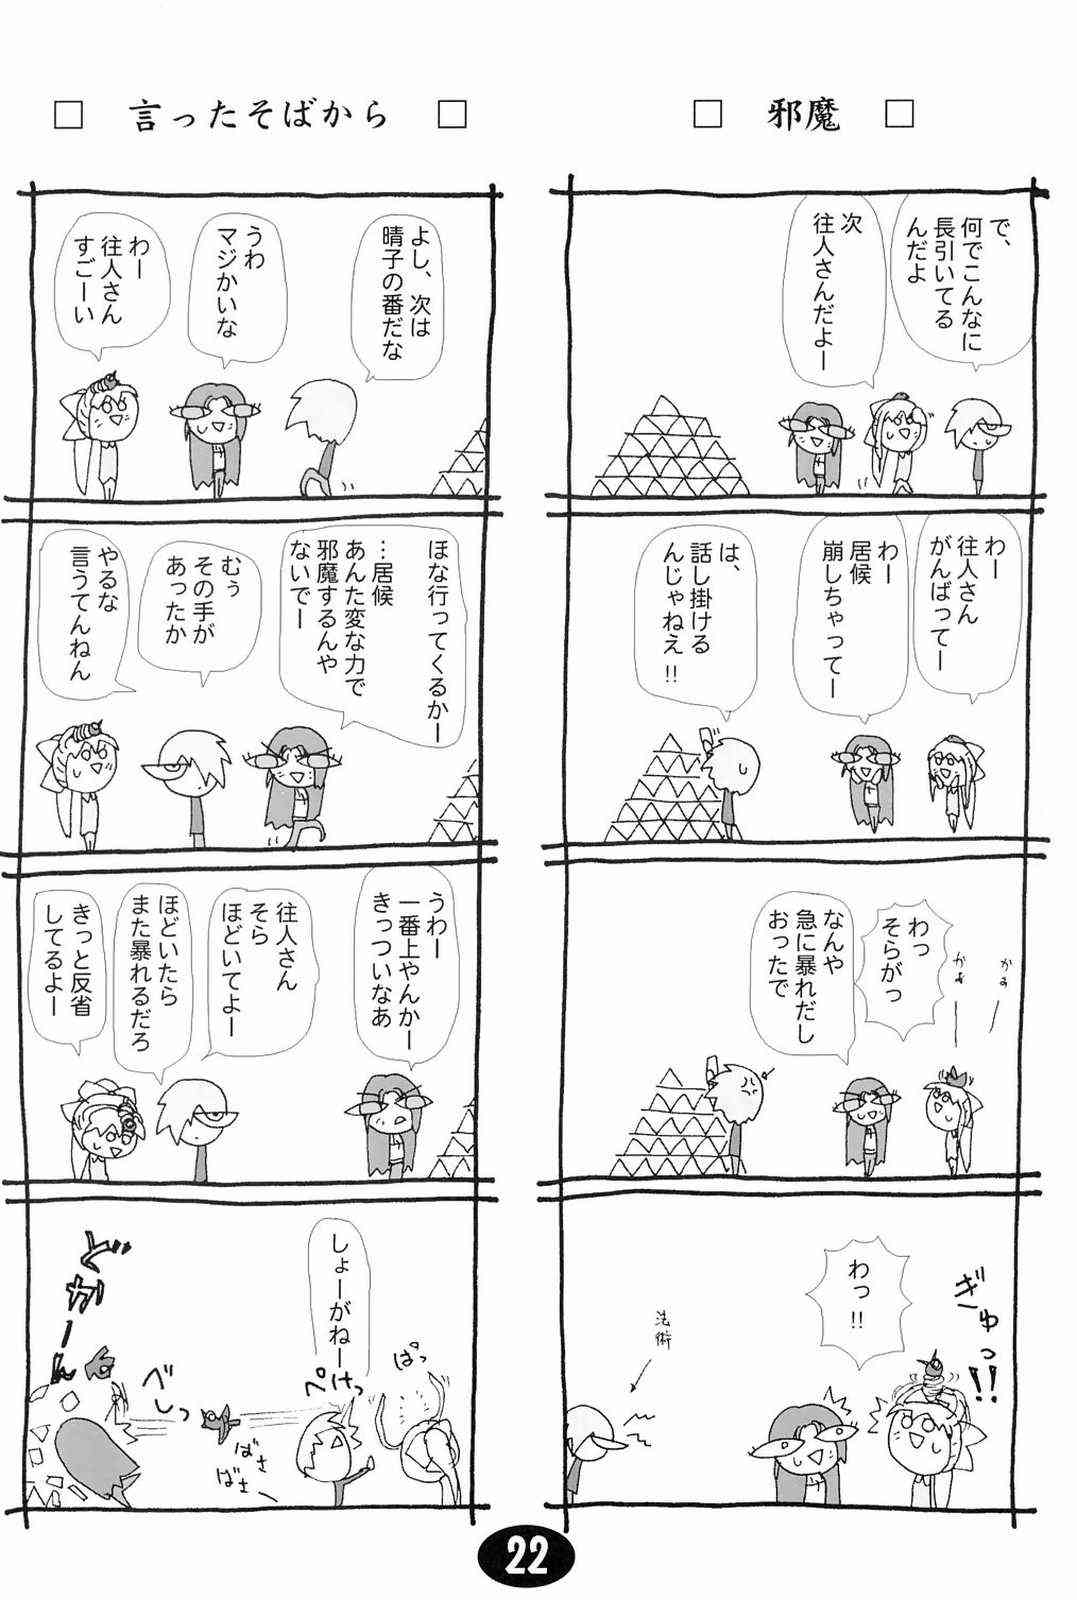 □ 邪魔 □
で、
何でこんなに
長引いてる
んだよ
次
往人さんだよー
わー
往人さん
がんばってー
わー
居候
崩しちゃってー
は、
話し掛ける
んじゃねえ!!
かぁー
かぁー
わっ
そらがっ
なんや
急に暴れだし
おったで
ぎゅっ!!
わっ!!
法術
□ 言ったそばから □
よし、次は
晴子の番だな
うわ
マジかいな
わー
往人さん
すごーい
ほな行ってくるかー
…居候
あんた変な力で
邪魔するんや
ないでー
むぅ
その手が
あったか
やるな
言うてんねん
うわー
一番上やんかー
きっついなあ
往人さん
そら
ほどいてよー
ほどいたら
また暴れるだろ
きっと反省
してるよー
ぱっ
しょーがねー
ぺけっ
ばさ
ばさ
べしっ
どがーん
22